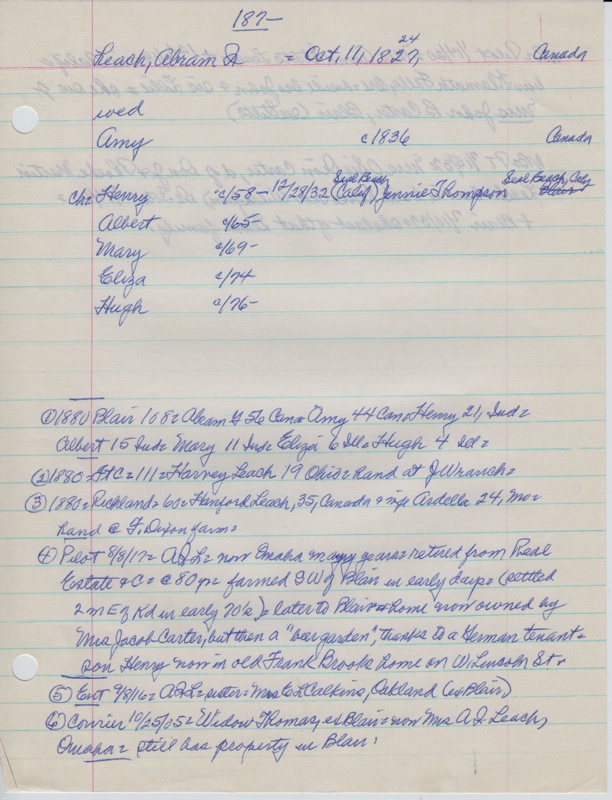 187-
Leach, Abram = Oct. 11, 1827, 24 Canada
wed
Amy c1836 Canada
Ch= Henry c/58- 12/28/32 Seal Beach (Calif) Jennie Thompson Seal Beach, Calif Blair
Albert c/65-
Mary c/69-
Eliza c/74
Hugh c/76-
① 1880 Blair 108= Abram 56 Can= Amy 44 Can= Henry 21, Ind=
Albert 15 Ind= Mary 11 Ind= Eliza 6 Ill= Hugh 4 Ill=
② 1880= = 111= Harvey Leach 19 Ohio= hand at ranch=
③ 1880= Richland= 60= Hanford Leach, 35, Canada & wife Ardella 24, Mo=
hand @ F. Dixon farm=
④ Pilot 8/8/17= = now Omaha many years= retired from Real
Estate &C= @ 80 yr= farmed SW of Blair in early days= (settled
2 m E of Kd in early 70's)= later to Blair= home now owned by
Mrs Jacob Carter, but then a "beer garden", thanks to a German tenant=
son Henry now in old Frank Brooks home on W. Lincoln St=
⑤ Ent 9/8/16= = sister= Mrs E L Calkins, Oakland (ex Blair)
⑥ Courier 10/25/05= Widow Thomas, ex Blair= now Mrs Leach,
Omaha= still has property in Blair: